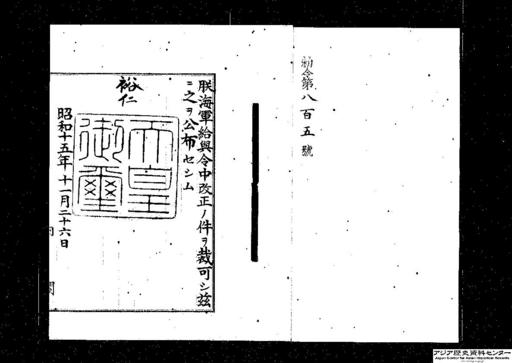 勅令第八百五號
朕海軍給與令中改正ノ件ヲ裁可シ茲
ニ之ヲ公布セシム
裕仁
天皇
御璽
昭和十五年十一月二十六日
アジア歴史資料センター
Japan Center for Asian Historical Records